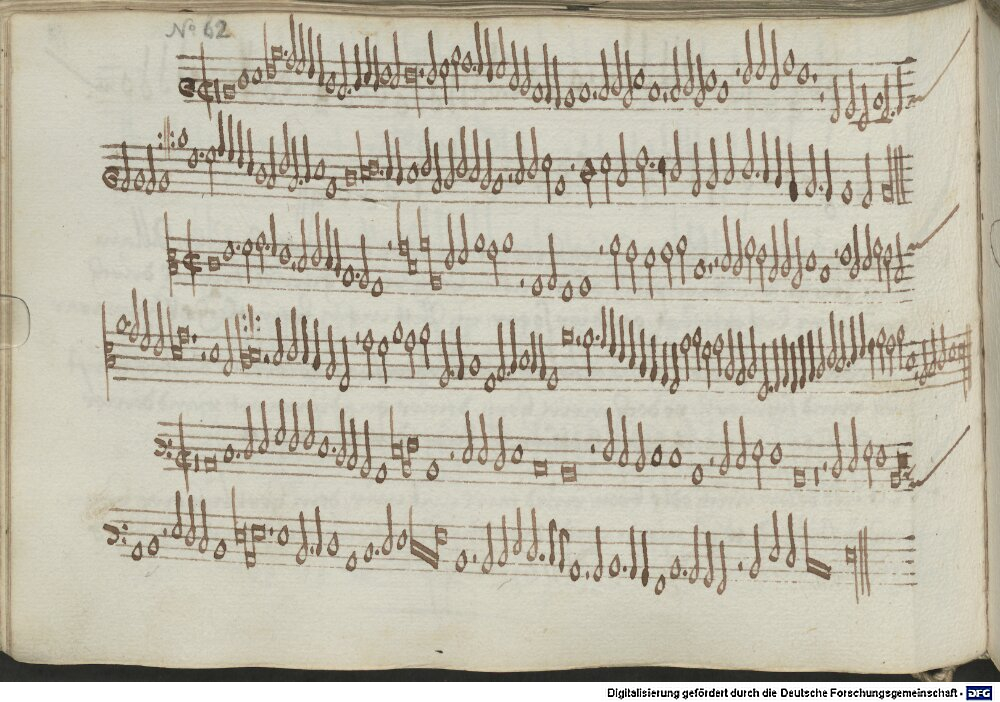 No 62
Digitalisierung gefördert durch die Deutsche Forschungsgemeinschaft - DFG